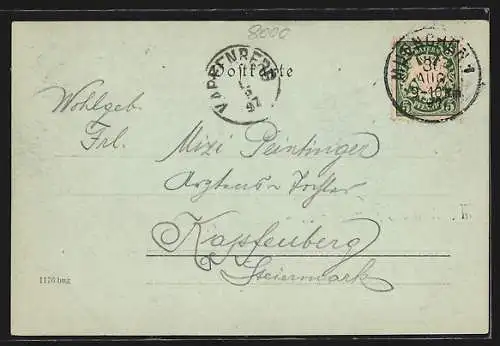 8000
Postkarte
KAPFENBERG
97
MUENCHEN 1
31
AUG
Wohlgeb.
Frl. Mizi Peintinger
Arztens-Tochter
Kapfenberg
Steiermark
1176 bmg